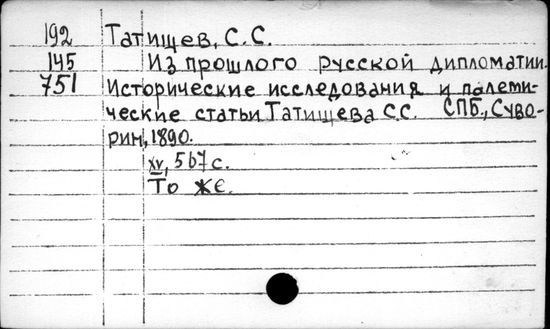 192 Татищев, С. С.
145 Из прошлого русской дипломатии.
751 Исторические исследования и палеми-
ческие статьи Татищева С.С. СПБ., Суво-
рин, 1890.
XV, 567 с.
То же.